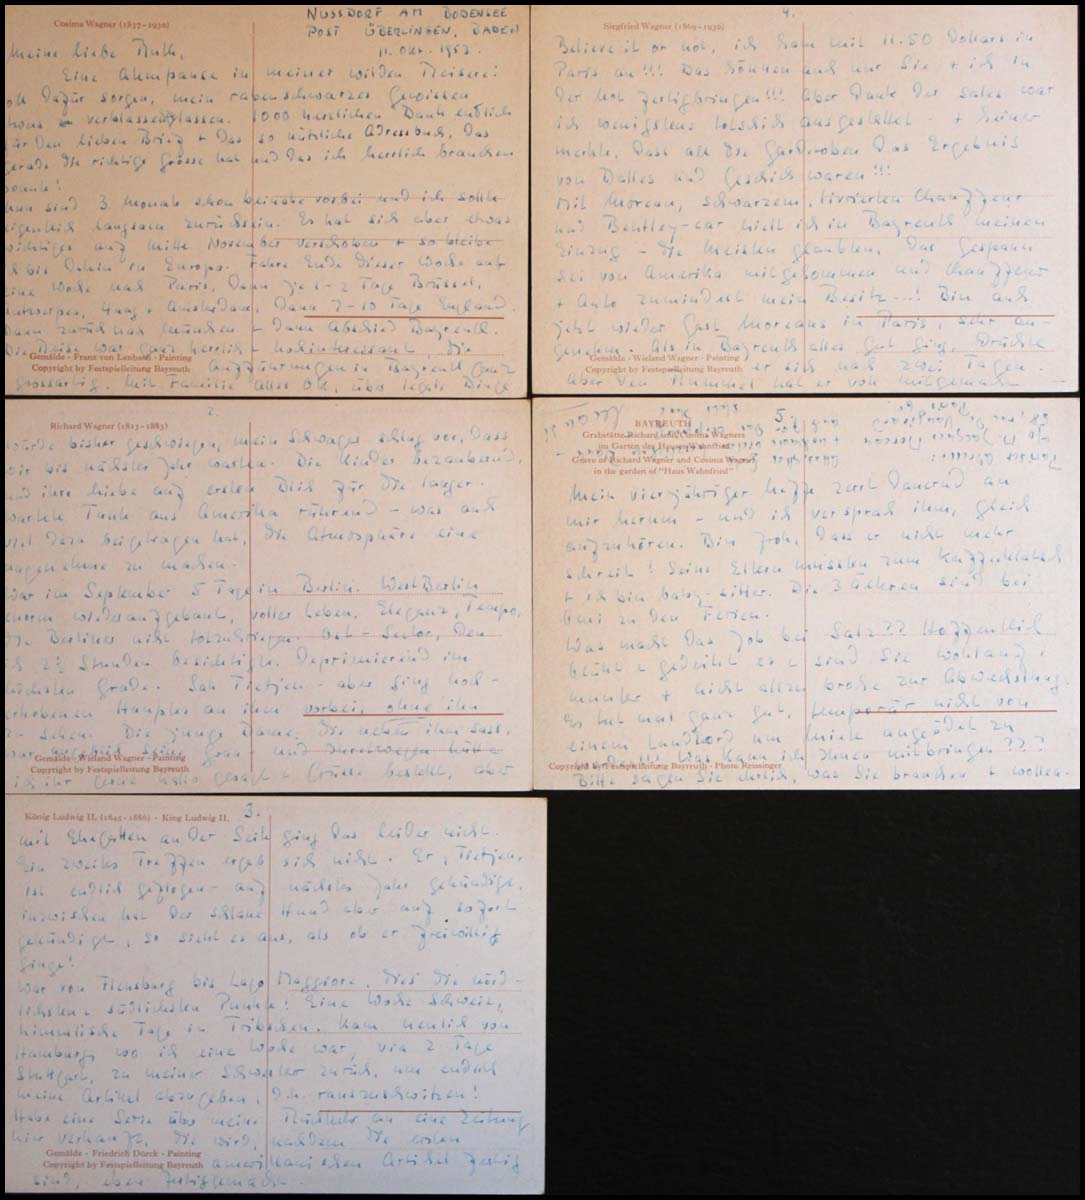 Cosima Wagner (1837 - 1930)
NUSSDORF AM BODENSEE
POST ÜBERLINGEN, BADEN
11. Okt. 1953.
Meine liebe Ruth,
Eine Atempause in meiner wilden Reiserei
soll dafür sorgen, mein rabenschwarzes Gewissen
etwas verblassen zu lassen. 1000 herzlichen Dank endlich
für den lieben Brief + das so nützliche Adressbuch, das
gerade die richtige Grösse hat und das ich herrlich brauchen
konnte!
Nun sind 3 Monate schon beinahe vorbei und ich sollte
eigentlich langsam zurück sein. Es hat sich aber etwas
wichtiges auf Mitte November verschoben + so bleibe
ich bis dahin in Europa. Fahre Ende dieser Woche auf
eine Woche nach Paris, dann je 1-2 Tage Brüssel,
Antwerpen, Haag + Amsterdam. Dann 7-10 Tage England.
Dann zurück nach München + dann Abschied Bayreuth.
Die Reise war ganz herrlich + hochinteressant, die
Gemälde - Franz von Lenbach - Painting
Aufführungen in Bayreuth ganz
Copyright by Festspielleitung Bayreuth
grossartig. Mit Familie alles OK, über legale Dinge
2.
Richard Wagner (1813 - 1883)
wurde bisher geschwiegen, mein Schwager schlug vor, dass
wir bis nächstes Jahr warten. Die Kinder bezaubernd,
und ihre Liebe auf ersten Blick für die langer-
wartete Tante aus Amerika rührend - was auch
viel dazu beigetragen hat, die Atmosphäre eine
angenehme zu machen.
War im September 5 Tage in Berlin. WestBerlin
enorm wiederaufgebaut, voller Leben, Eleganz, Tempo,
die Berliner nicht totzukriegen. Ost-Sector, den
ich 2½ Stunden besichtigte. Deprimierend im
höchsten Grade. Sah Tietjen - aber ging hoch-
erhobenen Hauptes an ihm vorbei, ohne ihn
zu sehen. Die junge Dame, die neben ihm sass,
war angeblich seine Frau - und
Gemälde - Wieland Wagner - Painting
Copyright by Festspielleitung Bayreuth
ich ihr gerne Hallo gesagt + Grüsse bestellt, aber
3.
König Ludwig II. (1845 - 1886) - King Ludwig II.
mit Ehegatten an der Seite ging das leider nicht.
Ein zweites Treffen ergab sich nicht. Er, Tietjen,
ist endlich geflogen - auf nächstes Jahr gekündigt,
inzwischen hat der schlaue Hund aber auf sofort
gekündigt, so sieht es aus, als ob er freiwillig
ginge!
War von Flensburg bis Lago Maggiore, dies die nörd-
lichsten + südlichsten Punkte! Eine Woche Schweiz,
himmlische Tage in Tribschen. Kam neulich von
Hamburg, wo ich eine Woche war, via 2 Tage
Stuttgart, zu meiner Schwester zurück, um endlich
meine Artikel abzugeben, d.h. rauszuschwitzen!
Habe eine Serie über meine Rückkehr an eine Zeitung
hier verkauft, die wird, nachdem die ersten
Gemälde - Friedrich Dürck - Painting
Copyright by Festspielleitung Bayreuth
amerikanischen Artikel fertig
sind, eben fertiggemacht.
4.
Siegfried Wagner (1869 - 1930)
Believe it or not, ich kam mit 11.50 Dollars in
Paris an!!! Das können auch nur Sie + ich in
der Not fertigbringen!!! Aber dank der sales war
ich wenigstens todschick ausgestattet - + keiner
merkte, dass all die Garderoben das Ergebnis
von Dalles und Geschick waren!!!
Mit Moreau, schwarzem, livrierten Chauffeur
und Bentley-car hielt ich in Bayreuth meinen
Einzug - die meisten glaubten, das Gespann
sei von Amerika mitgekommen und Chauffeur
+ Auto zumindest mein Besitz...! Bin auch
jetzt wieder Gast Moreaus in Paris, sehr an-
genehm. Als in Bayreuth alles gut ging, drückte
Gemälde - Wieland Wagner - Painting
Copyright by Festspielleitung Bayreuth
er sich nach zwei Tagen.
Aber den Rummel hat er voll mitgemacht
5.
BAYREUTH
Grabstätte Richard und Cosima Wagners
im Garten des Hauses Wahnfried
Grave of Richard Wagner and Cosima Wagner
in the garden of "Haus Wahnfried"
Mein vierjähriger Neffe zerrt dauernd an
mir herum - und ich versprach ihm, gleich
aufzuhören. Bin froh, dass er nicht mehr
schreit! Seine Eltern mussten zum Kaffeeklatsch
+ ich bin baby-sitter. Die 3 Älteren sind bei
Omi zu den Ferien.
Was macht das Job bei Satz?? Hoffentlich
blüht + gedeiht es + sind Sie wohlauf,
munter + nicht allzu broke zur Abwechslung.
Es tut mal ganz gut, temporär nicht von
einem Landlord um Miete angeödet zu
werden. Was kann ich Ihnen mitbringen???
Copyright by Festspielleitung Bayreuth - Photo Reissinger
Bitte sagen Sie ehrlich, was Sie brauchen + wollen.